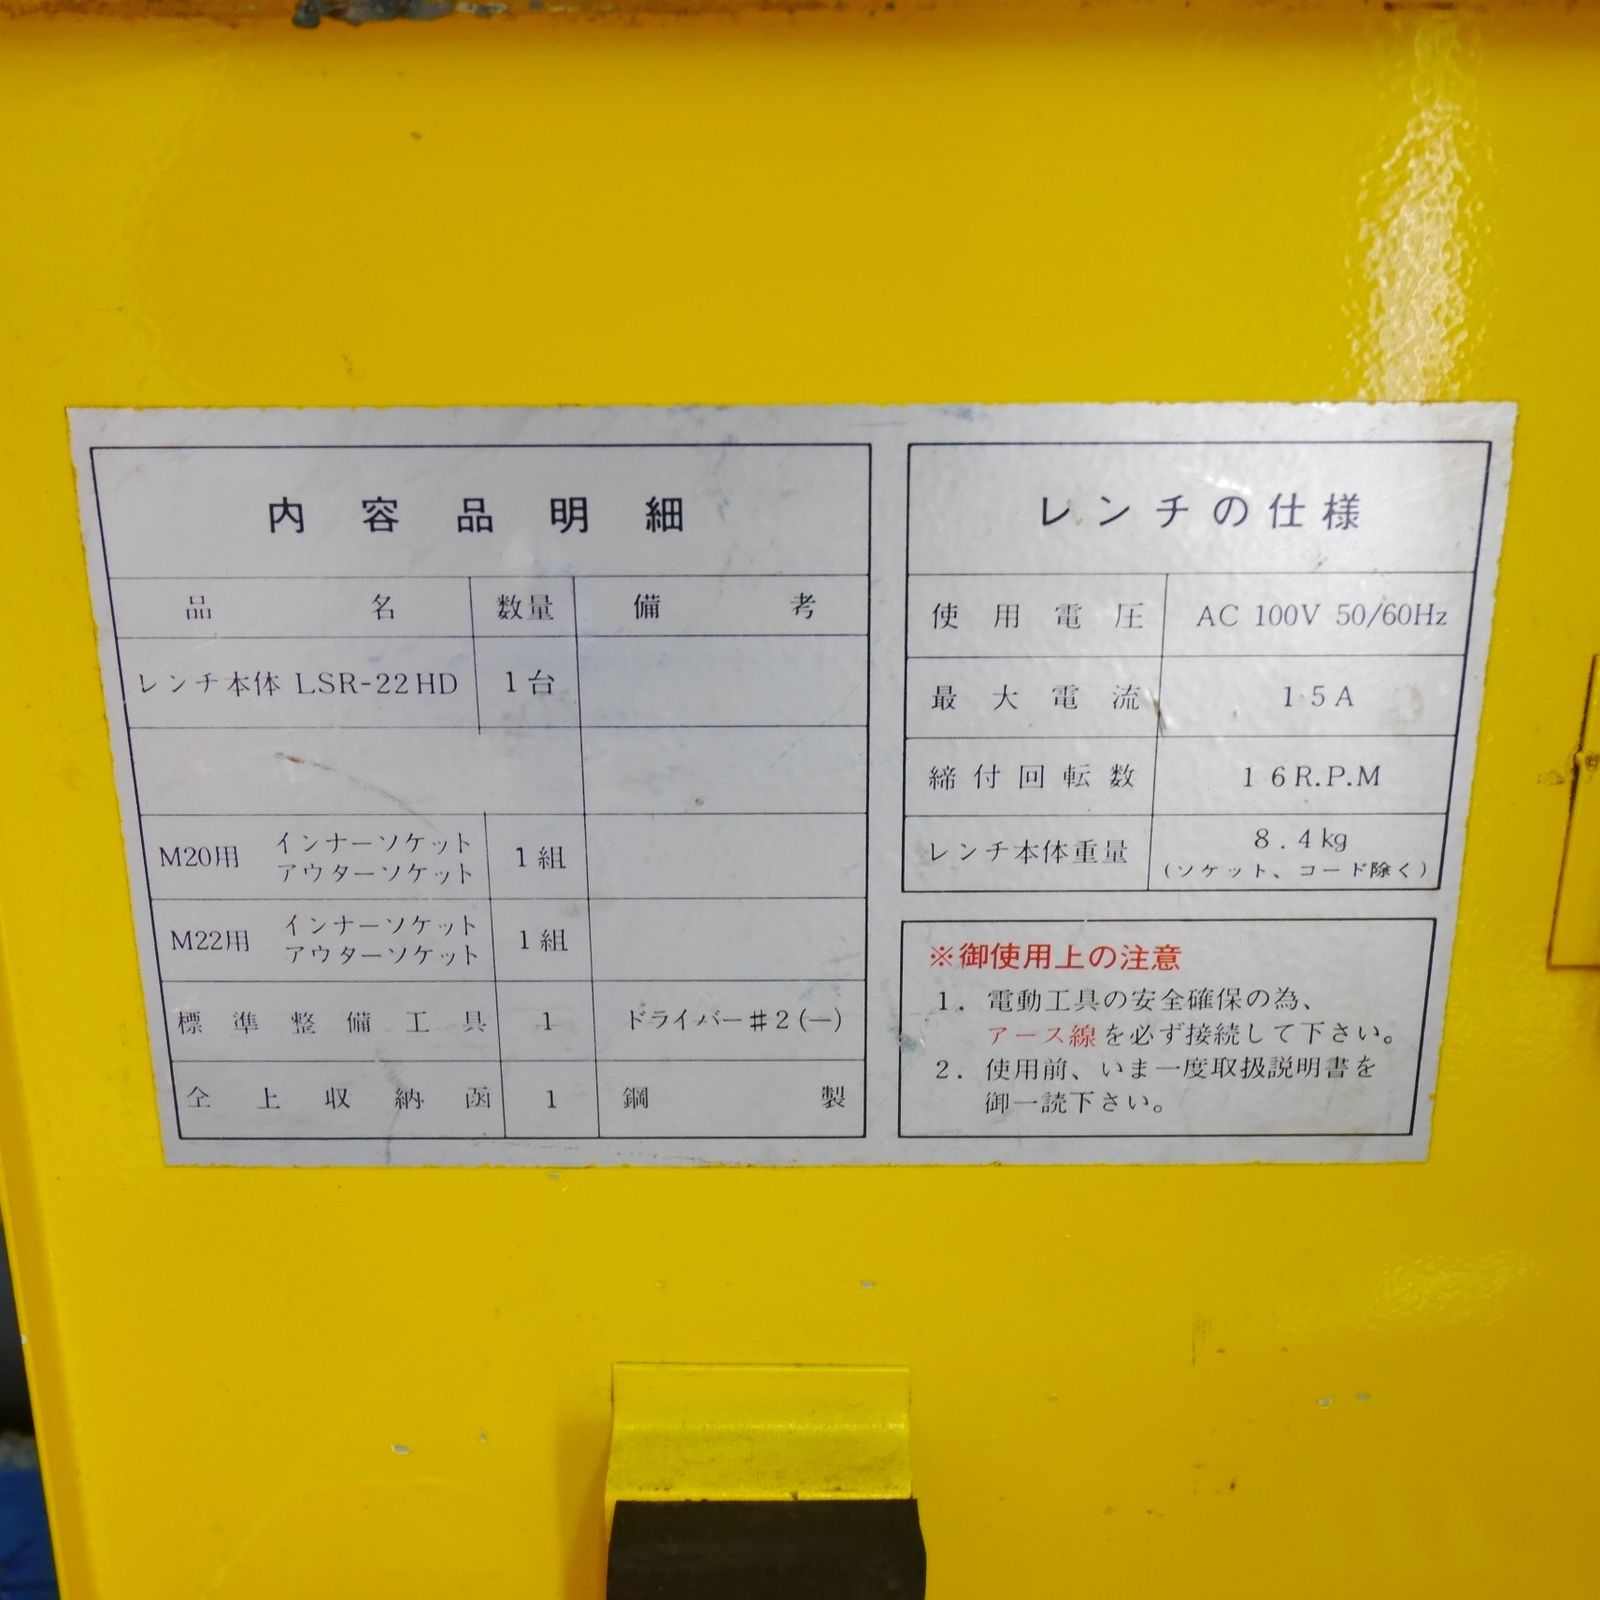 内容品明細
品名 数量 備考
レンチ本体 LSR-22HD 1台
M20用 インナーソケット アウターソケット 1組
M22用 インナーソケット アウターソケット 1組
標準整備工具 1 ドライバー#2(-)
仝上収納函 1 鋼製
レンチの仕様
使用電圧 AC 100V 50/60Hz
最大電流 15A
締付回転数 16R.P.M
レンチ本体重量 8.4kg
(ソケット、コード除く)
※御使用上の注意
1. 電動工具の安全確保の為、
アース線を必ず接続して下さい。
2. 使用前、いま一度取扱説明書を
御一読下さい。